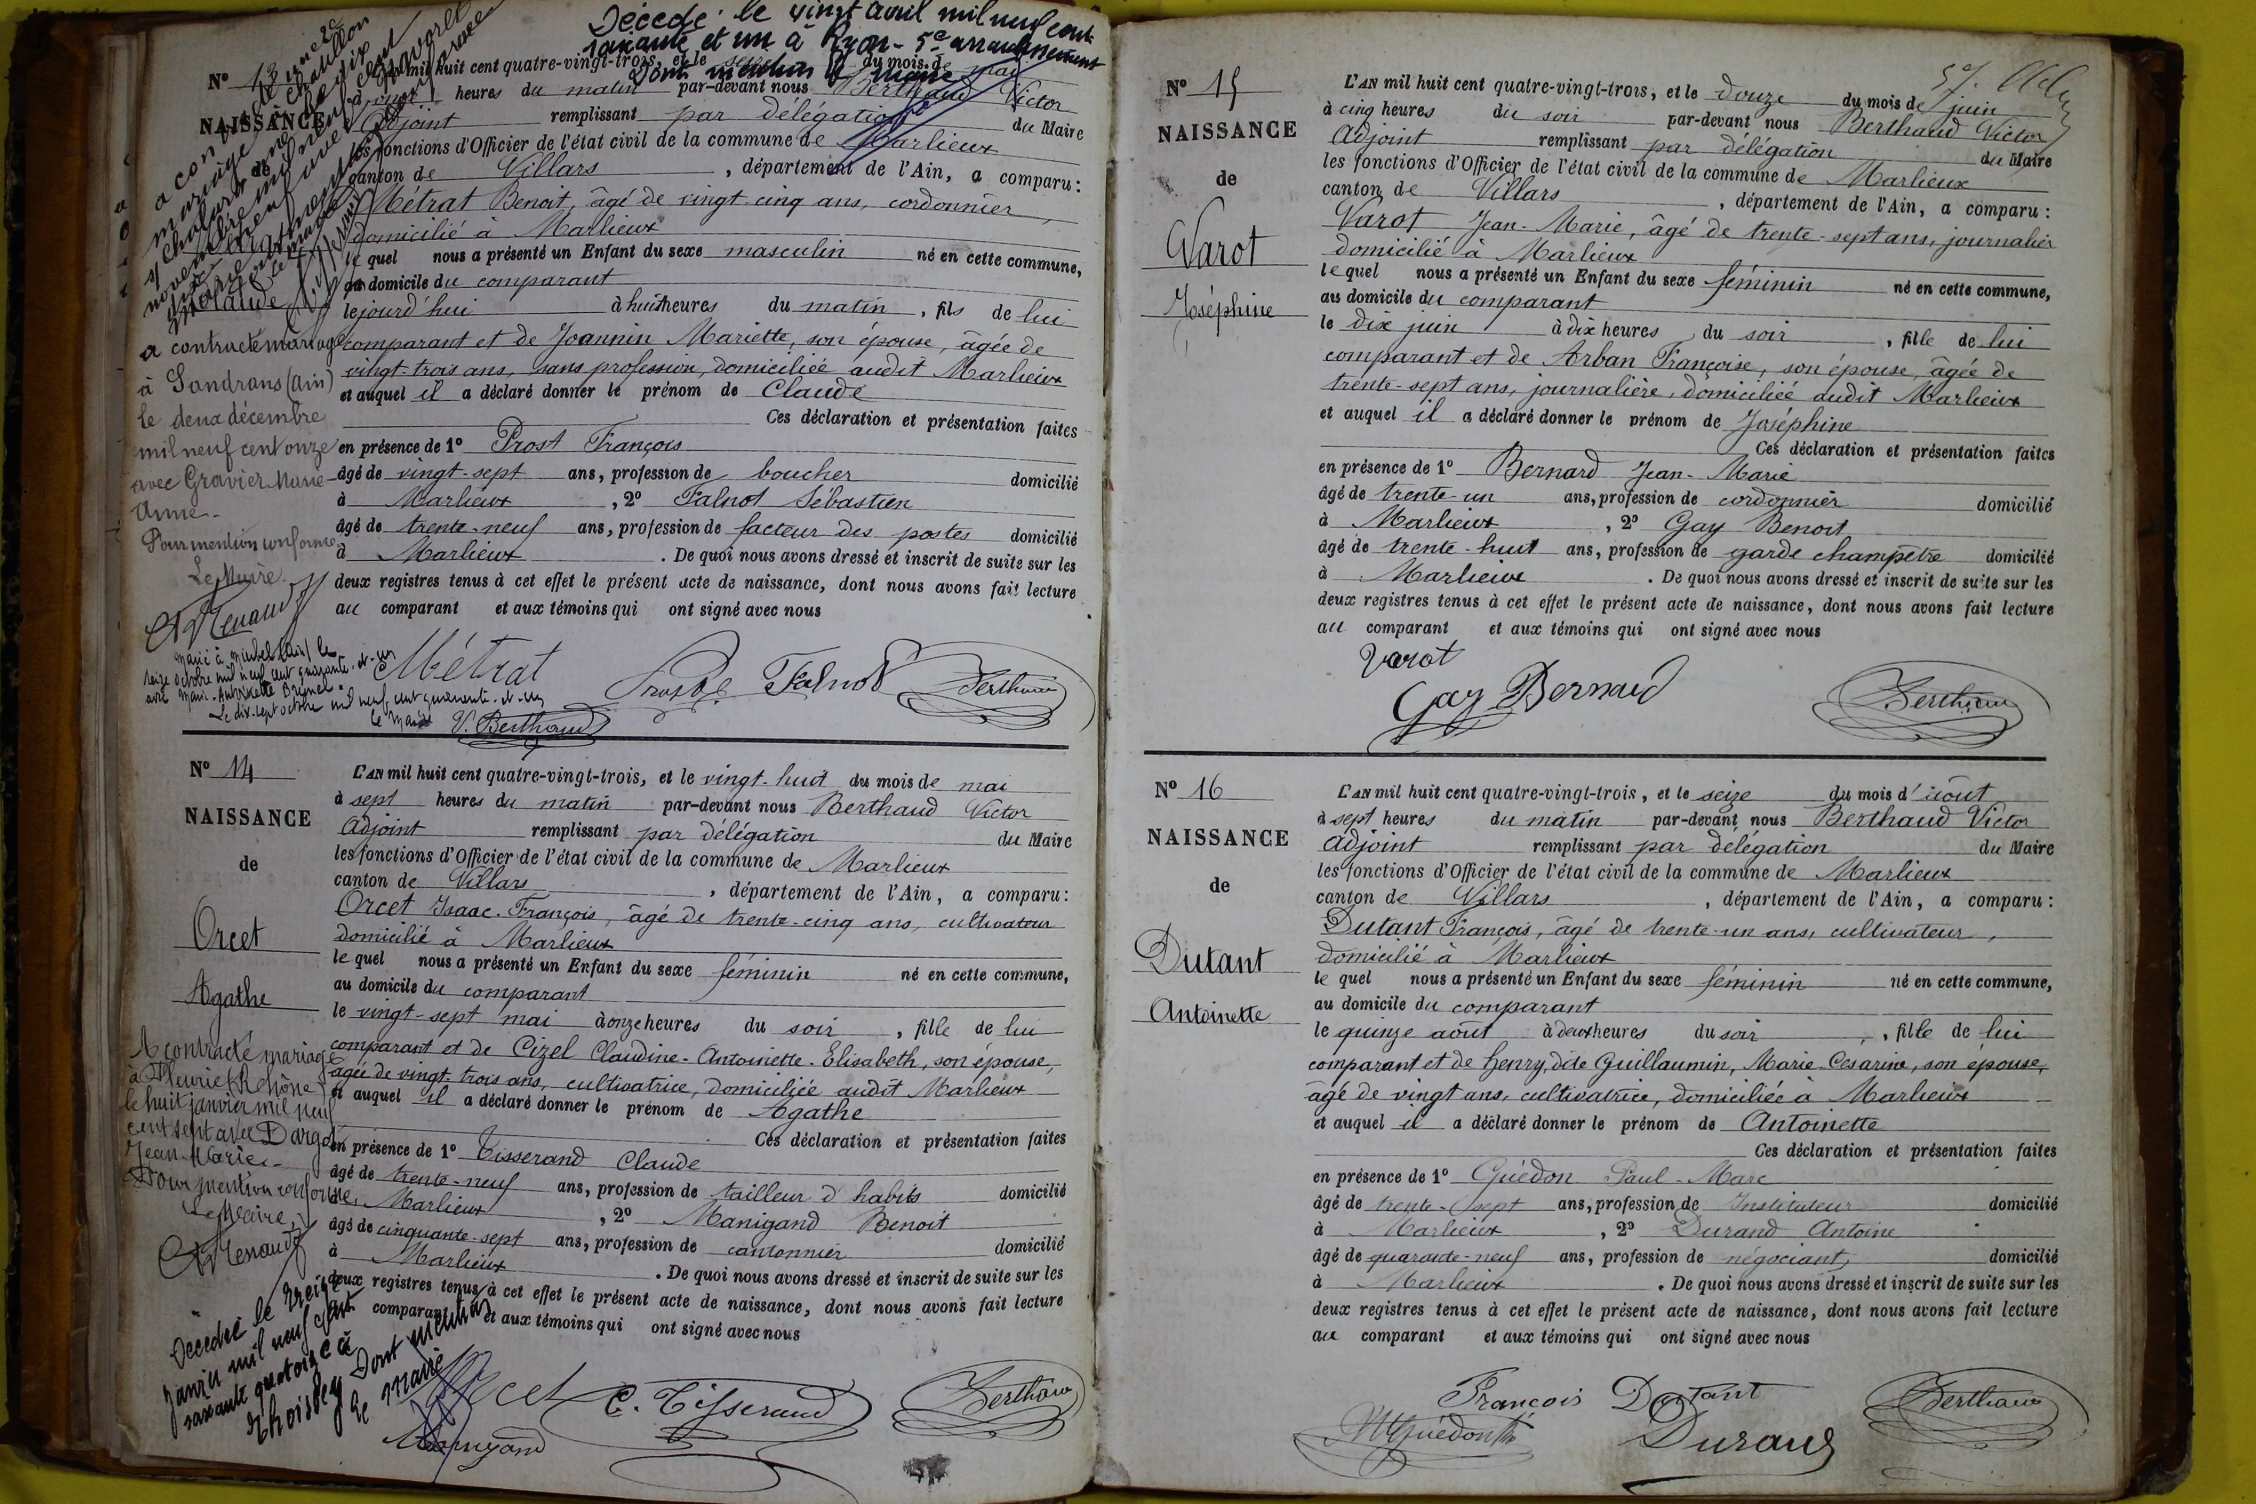 Décédé le vingt avril mil neuf cent
soixante et un à Lyon - 5e arrondissement
Dont mention le maire
No 13
NAISSANCE
de
Claude
L'AN mil huit cent quatre-vingt-trois, et le du mois de mai
à heures du matin par-devant nous Berthaud Victor
Adjoint remplissant par délégation du Maire
les fonctions d'Officier de l'état civil de la commune de Marlieux
canton de Villars, département de l'Ain, a comparu:
Métrat Benoit, âgé de vingt-cinq ans, cordonnier,
domicilié à Marlieux
le quel nous a présenté un Enfant du sexe masculin né en cette commune,
au domicile du comparant
le jourd'hui à huit heures du matin, fils de lui
comparant et de Joannin Mariette, son épouse, âgée de
vingt-trois ans, sans profession, domiciliée audit Marlieux
et auquel il a déclaré donner le prénom de Claude
Ces déclaration et présentation faites
en présence de 1º Prost François
âgé de vingt-sept ans, profession de boucher domicilié
à Marlieux, 2º Falnot Sébastien
âgé de trente-neuf ans, profession de facteur des postes domicilié
à Marlieux. De quoi nous avons dressé et inscrit de suite sur les
deux registres tenus à cet effet le présent acte de naissance, dont nous avons fait lecture
au comparant et aux témoins qui ont signé avec nous
a contracté mariage
à Sandrans (Ain)
le deux décembre
mil neuf cent onze
avec Gravier Marie
Anne.
Pour mention conforme
Le Maire
Marié à (Ain) le
seize octobre mil neuf cent quarante-et-un
avec Marie-Antoinette
Le dix-sept octobre mil neuf cent quarante-et-un
le Maire
V. Berthaud
Métrat Falnot Berthaud
No 14
NAISSANCE
de
Orcet
Agathe
L'AN mil huit cent quatre-vingt-trois, et le vingt-huit du mois de mai
à sept heures du matin par-devant nous Berthaud Victor
Adjoint remplissant par délégation du Maire
les fonctions d'Officier de l'état civil de la commune de Marlieux
canton de Villars, département de l'Ain, a comparu:
Orcet Isaac-François, âgé de trente-cinq ans, cultivateur
domicilié à Marlieux
le quel nous a présenté un Enfant du sexe féminin né en cette commune,
au domicile du comparant
le vingt-sept mai à onze heures du soir, fille de lui
comparant et de Cizel Claudine-Antoinette-Elisabeth, son épouse,
âgée de vingt-trois ans, cultivatrice, domiciliée audit Marlieux
et auquel il a déclaré donner le prénom de Agathe
Ces déclaration et présentation faites
en présence de 1º Tisserand Claude
âgé de trente-neuf ans, profession de tailleur d'habits domicilié
à Marlieux, 2º Manigand Benoit
âgé de cinquante-sept ans, profession de cantonnier domicilié
à Marlieux. De quoi nous avons dressé et inscrit de suite sur les
deux registres tenus à cet effet le présent acte de naissance, dont nous avons fait lecture
comparant et aux témoins qui ont signé avec nous
A contracté mariage
à Fleurie (Rhône)
le huit janvier mil neuf
cent sept avec
Jean-Marie.
Pour mention conforme,
Le Maire,
Décédée le treize
janvier mil neuf cent
soixante quatorze à
Thoissey Dont mention
le maire
Orcet C. Tisserand Berthaud
Manigand
No 15
NAISSANCE
de
Varot
Joséphine
L'AN mil huit cent quatre-vingt-trois, et le douze du mois de juin
à cinq heures du soir par-devant nous Berthaud Victor
Adjoint remplissant par délégation du Maire
les fonctions d'Officier de l'état civil de la commune de Marlieux
canton de Villars, département de l'Ain, a comparu:
Varot Jean-Marie, âgé de trente-sept ans, journalier
domicilié à Marlieux
le quel nous a présenté un Enfant du sexe féminin né en cette commune,
au domicile du comparant
le dix juin à dix heures du soir, fille de lui
comparant et de Arban Françoise, son épouse, âgée de
trente-sept ans, journalière, domiciliée audit Marlieux
et auquel il a déclaré donner le prénom de Joséphine
Ces déclaration et présentation faites
en présence de 1º Bernard Jean-Marie
âgé de trente-un ans, profession de cordonnier domicilié
à Marlieux, 2º Gay Benoit
âgé de trente-huit ans, profession de garde champêtre domicilié
à Marlieux. De quoi nous avons dressé et inscrit de suite sur les
deux registres tenus à cet effet le présent acte de naissance, dont nous avons fait lecture
au comparant et aux témoins qui ont signé avec nous
Varot
Gay Bernard Berthaud
No 16
NAISSANCE
de
Dutant
Antoinette
L'AN mil huit cent quatre-vingt-trois, et le seize du mois d'août
à sept heures du matin par-devant nous Berthaud Victor
Adjoint remplissant par délégation du Maire
les fonctions d'Officier de l'état civil de la commune de Marlieux
canton de Villars, département de l'Ain, a comparu:
Dutant François, âgé de trente-un ans, cultivateur,
domicilié à Marlieux
le quel nous a présenté un Enfant du sexe féminin né en cette commune,
au domicile du comparant
le quinze août à deux heures du soir, fille de lui
comparant et de Henry, dite Guillaumin, Marie-Cesarine, son épouse,
âgé de vingt ans, cultivatrice, domiciliée à Marlieux
et auquel il a déclaré donner le prénom de Antoinette
Ces déclaration et présentation faites
en présence de 1º Guédon Paul-Marc
âgé de trente-sept ans, profession de Instituteur domicilié
à Marlieux, 2º Durand Antoine
âgé de quarante-neuf ans, profession de négociant, domicilié
à Marlieux. De quoi nous avons dressé et inscrit de suite sur les
deux registres tenus à cet effet le présent acte de naissance, dont nous avons fait lecture
au comparant et aux témoins qui ont signé avec nous
François Dutant Berthaud
Guédon Durand